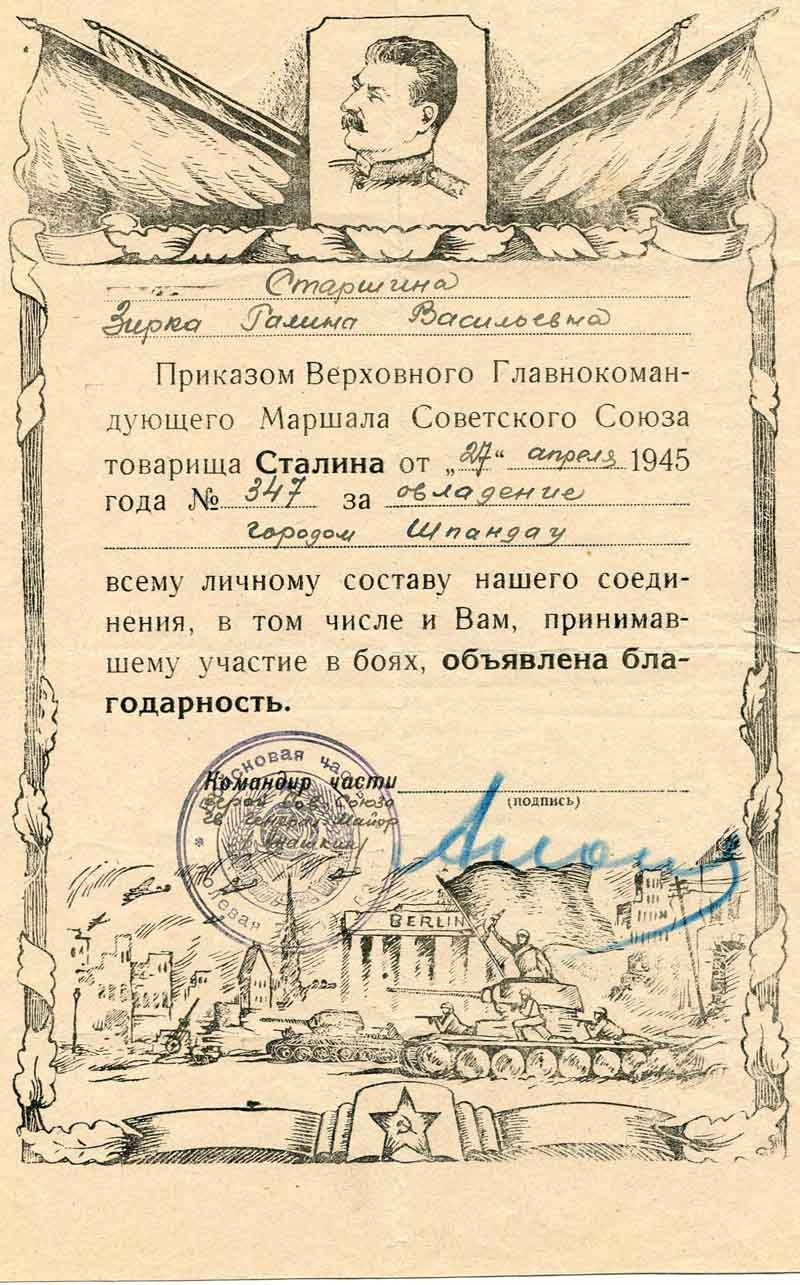 Старшина
Зирка Галина Васильевна
Приказом Верховного Главнокоман-
дующего Маршала Советского Союза
товарища Сталина от „27“ апреля 1945
года № 347 за овладение
городом Шпандау
всему личному составу нашего соеди-
нения, в том числе и Вам, принимав-
шему участие в боях, объявлена бла-
годарность.
Командир части
(подпись)
Герой Сов Союза
гв генерал-майор
/Аношкин/
BERLIN